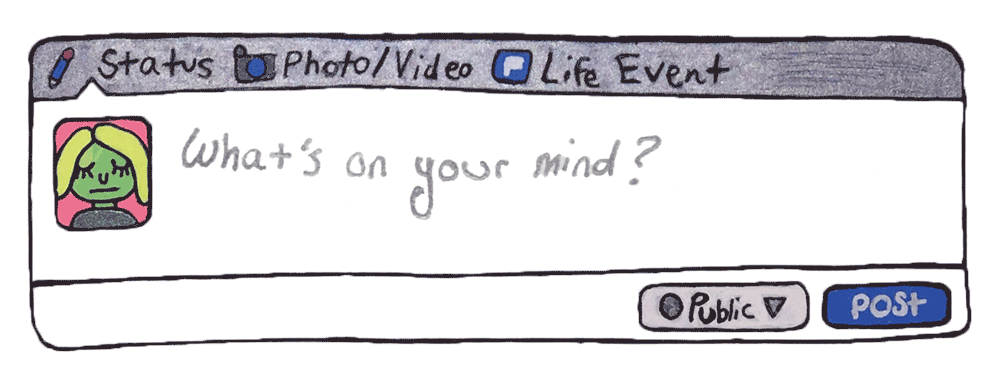 Status Photo/Video Life Event
What's on your mind?
Public POST